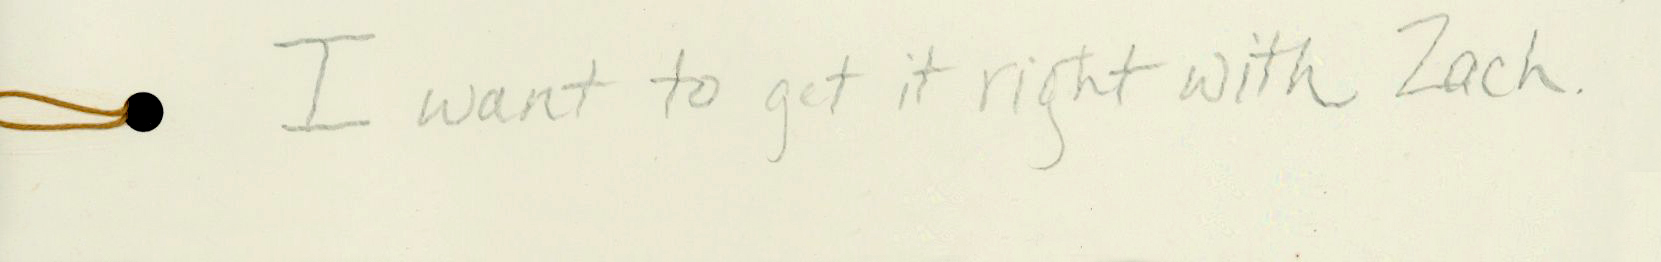 I want to get it right with Zach.